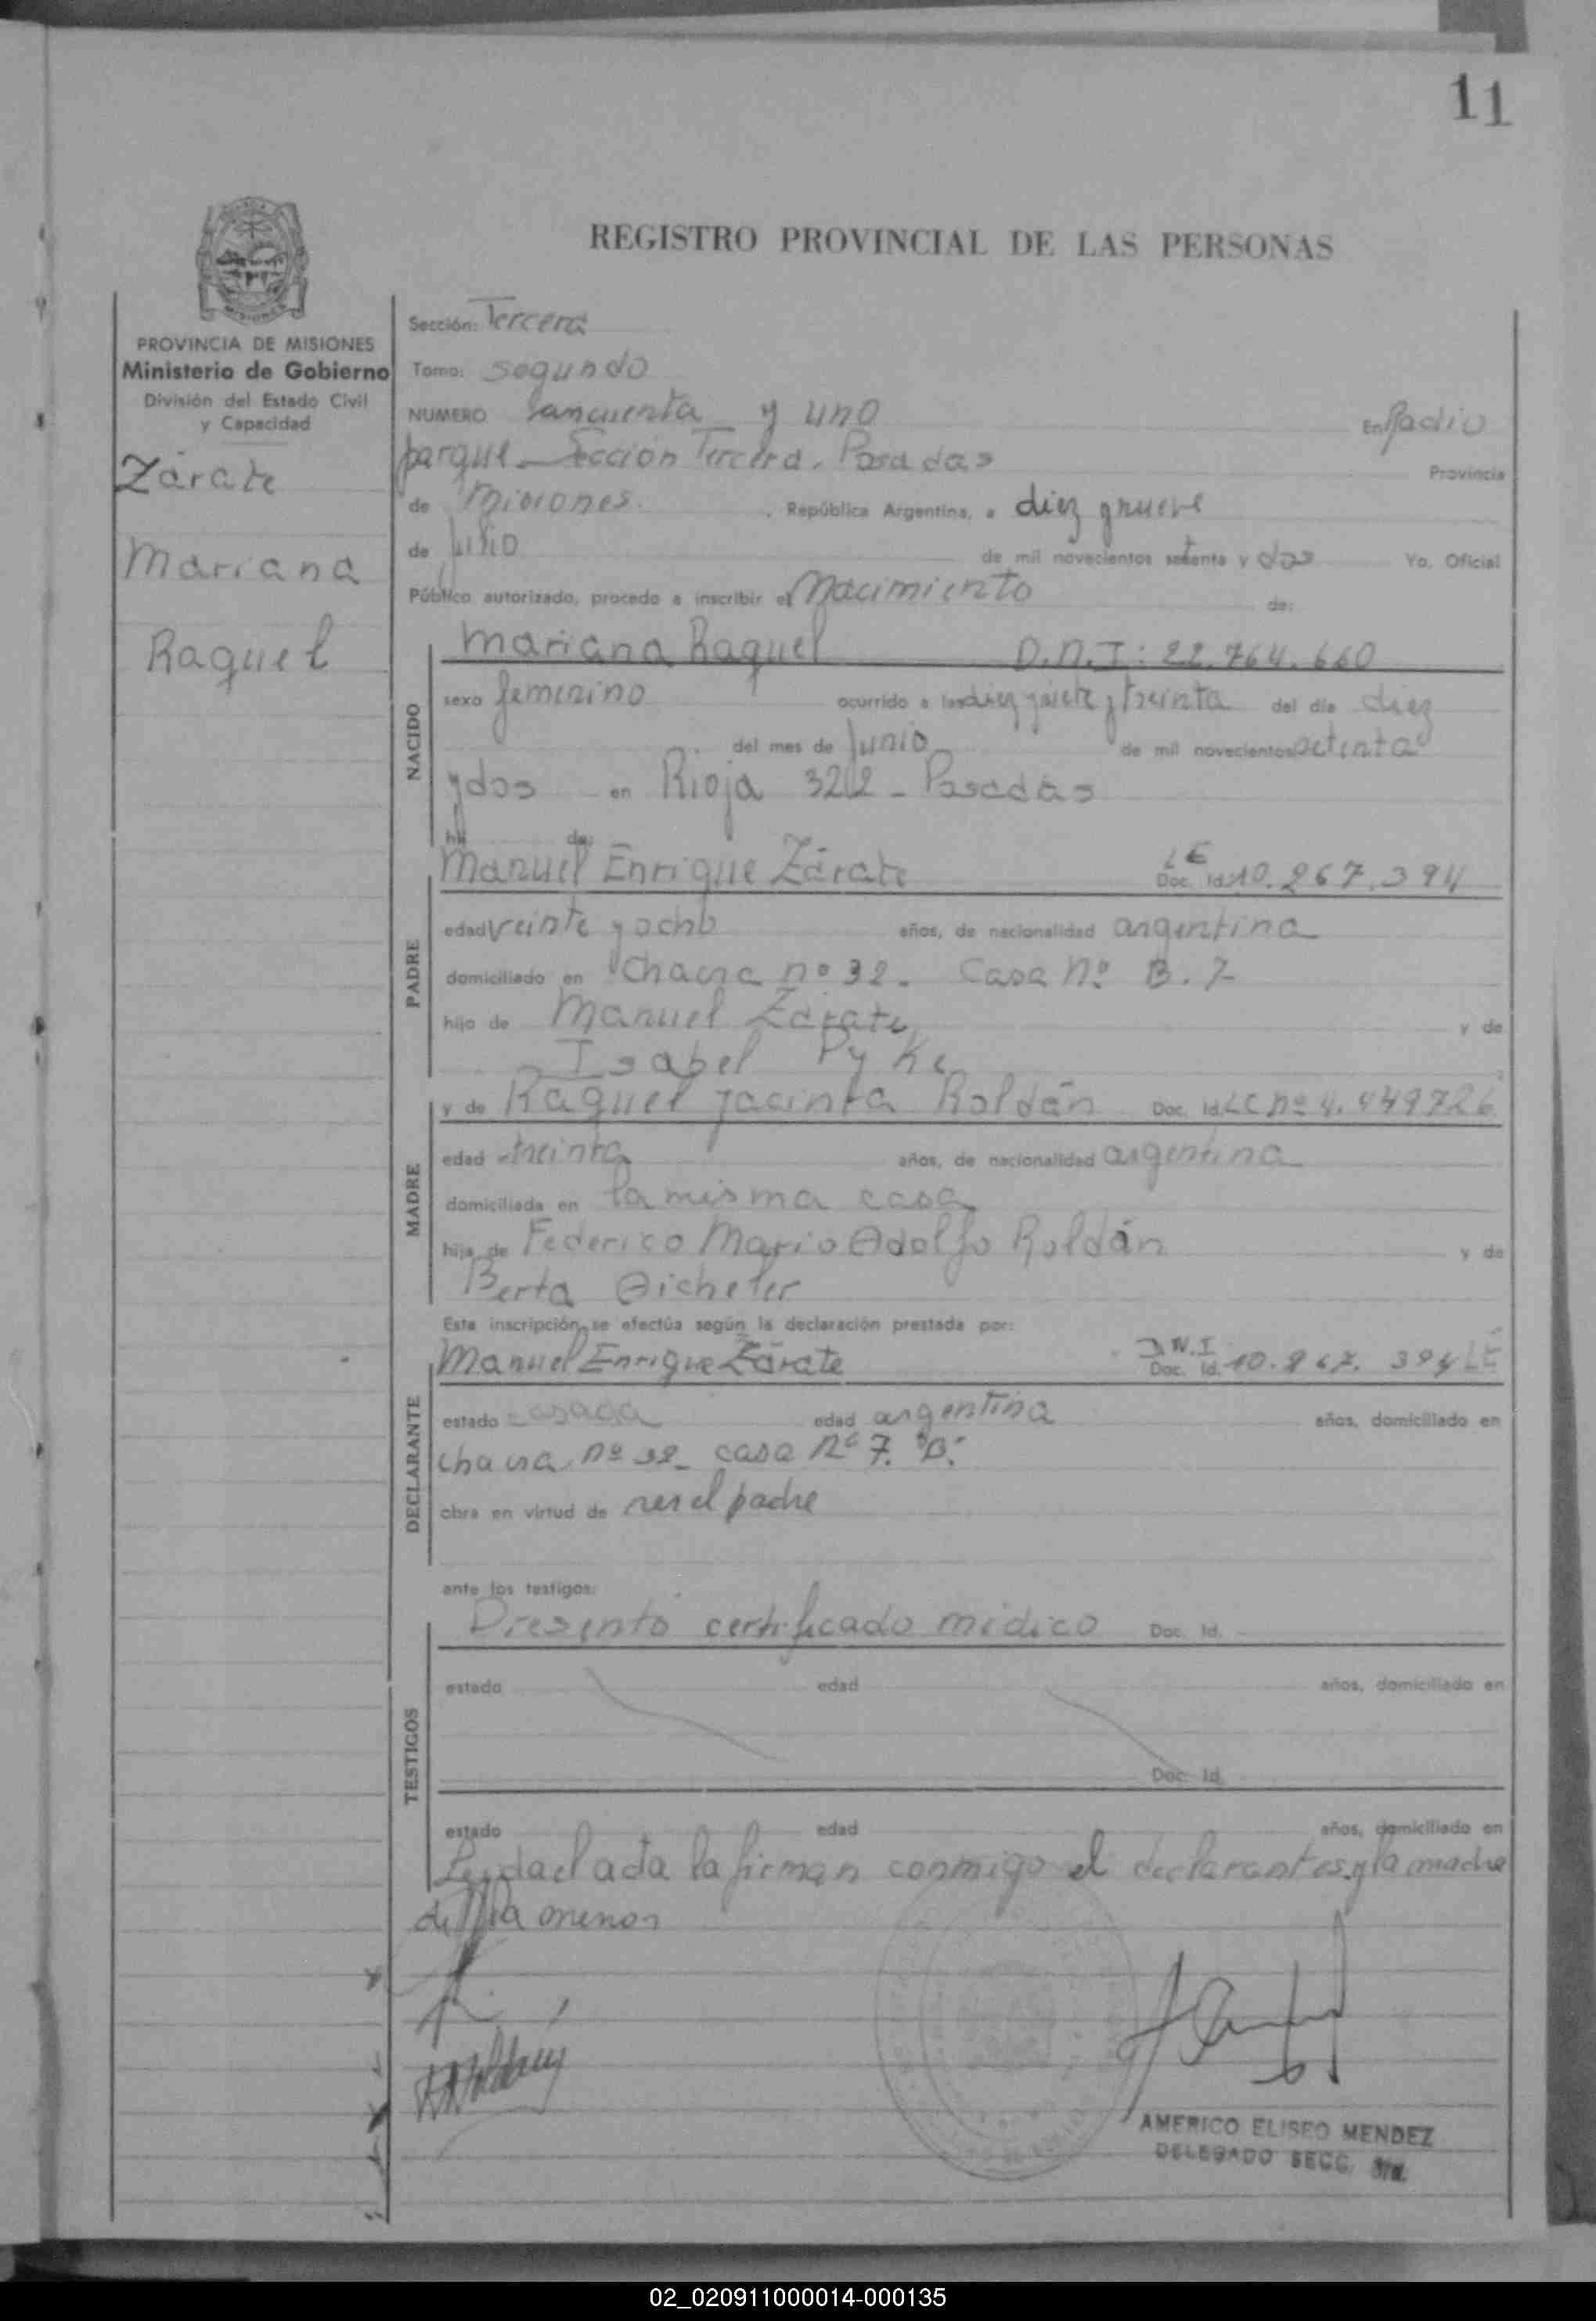 11
REGISTRO PROVINCIAL DE LAS PERSONAS
PROVINCIA DE MISIONES
Ministerio de Gobierno
División del Estado Civil
y Capacidad
Zárate
Mariana
Raquel
Sección: Tercera
Tomo: segundo
NUMERO y uno En Radio
parque Sección Tercera. Posadas Provincia
de Misiones. , República Argentina, a diez y nueve
de de mil novecientos setenta y dos Yo, Oficial
Público autorizado, procedo a inscribir el Nacimiento de:
NACIDO
Mariana Raquel D.N.I: 22.764.660
sexo femenino ocurrido a las diez y siete y treinta del día diez
del mes de Junio de mil novecientos setenta
y dos en Rioja - Posadas
hij de:
PADRE
Manuel Enrique Zárate LE Doc. Id. 10.267.394
edad veinte y ocho años, de nacionalidad argentina
domiciliado en Chacra nº 32. Casa Nº B. 7
hijo de Manuel Zárate y de
Isabel Pyke
MADRE
y de Raquel Jacinta Roldán Doc. Id. LC nº 4.449726
edad treinta años, de nacionalidad argentina
domiciliada en la misma casa
hija de Federico Mario Adolfo Roldán y de
Berta
Este inscripción se efectúa según la declaración prestada por:
DECLARANTE
Manuel Enrique Zárate D.N.I Doc. Id. 10.267.394 LE
estado casada edad argentina años, domiciliado en
chacra nº 32 casa Nº 7. "B"
obra en virtud de ser el padre
ante los testigos:
TESTIGOS
Presentó certificado médico Doc. Id.
estado edad años, domiciliado en
Doc. Id.
estado edad años, domiciliado en
Leida el acta la firman conmigo el declarantes y la madre
de la menor
AMERICO ELISEO MENDEZ
DELEGADO SECC. 3ra.
02_020911000014-000135